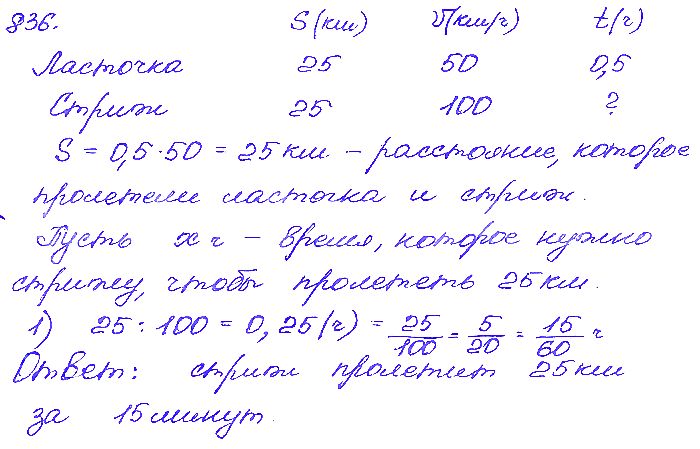 836. S(км) V(км/ч) t(ч)
Ласточка 25 50 0,5
Стриж 25 100 ?
S = 0,5·50 = 25 км – расстояние, которое
пролетели ласточка и стриж.
Пусть x ч – время, которое нужно
стрижу, чтобы пролететь 25 км.
1) 25 : 100 = 0,25 (ч) = 25/100 = 5/20 = 15/60 ч
Ответ: стриж пролетит 25 км
за 15 минут.